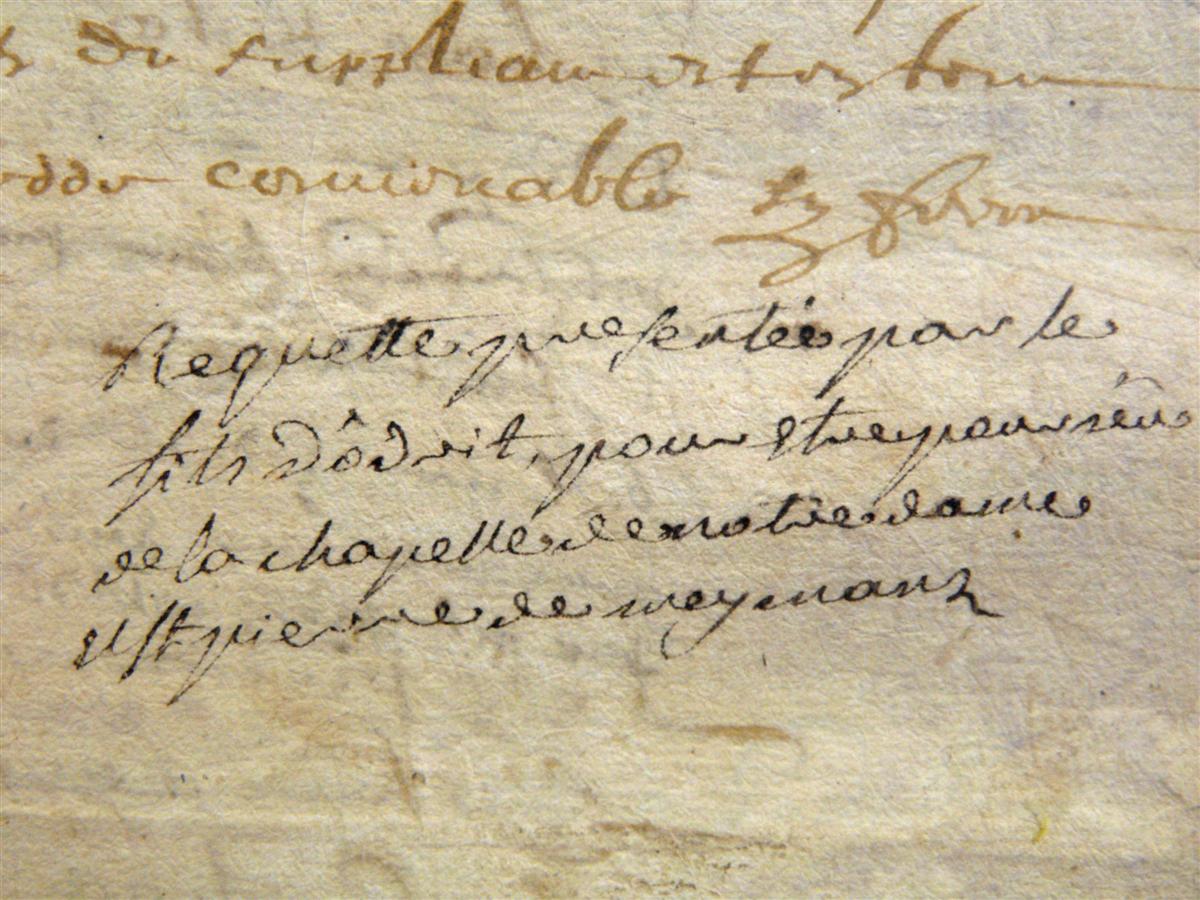 du suppliant
convenable
Requette presentée par le
fils D'odoit, pour etre pourvëu
de la chapelle de notre dame
et st pierre de meymans